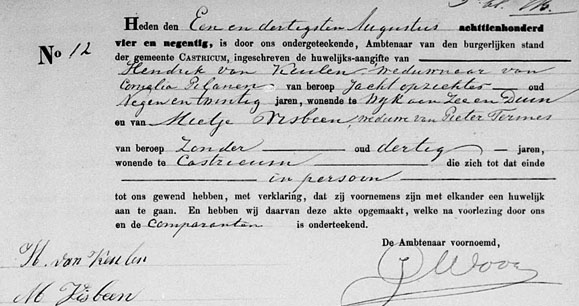 Heden den Een en dertigsten Augustus achttienhonderd
No 12 vier en negentig, is door ons ondergeteekende, Ambtenaar van den burgerlijken stand
der gemeente CASTRICUM, ingeschreven de huwelijks-aangifte van
Hendrik van Keulen, weduwnaar van
Cornelia Pilanen van beroep Jachtopzichter oud
Negen en twintig jaren, wonende te Wijk aan Zee en Duin
en van Mietje Visbeen, weduwe van Pieter Termes
van beroep Zonder oud dertig jaren,
wonende te Castricum die zich tot dat einde
in persoon
tot ons gewend hebben, met verklaring, dat zij voornemens zijn met elkander een huwelijk
aan te gaan. En hebben wij daarvan deze akte opgemaakt, welke na voorlezing door ons
en de Comparanten is onderteekend.
De Ambtenaar voornoemd,
H. van Keulen
M Visbeen